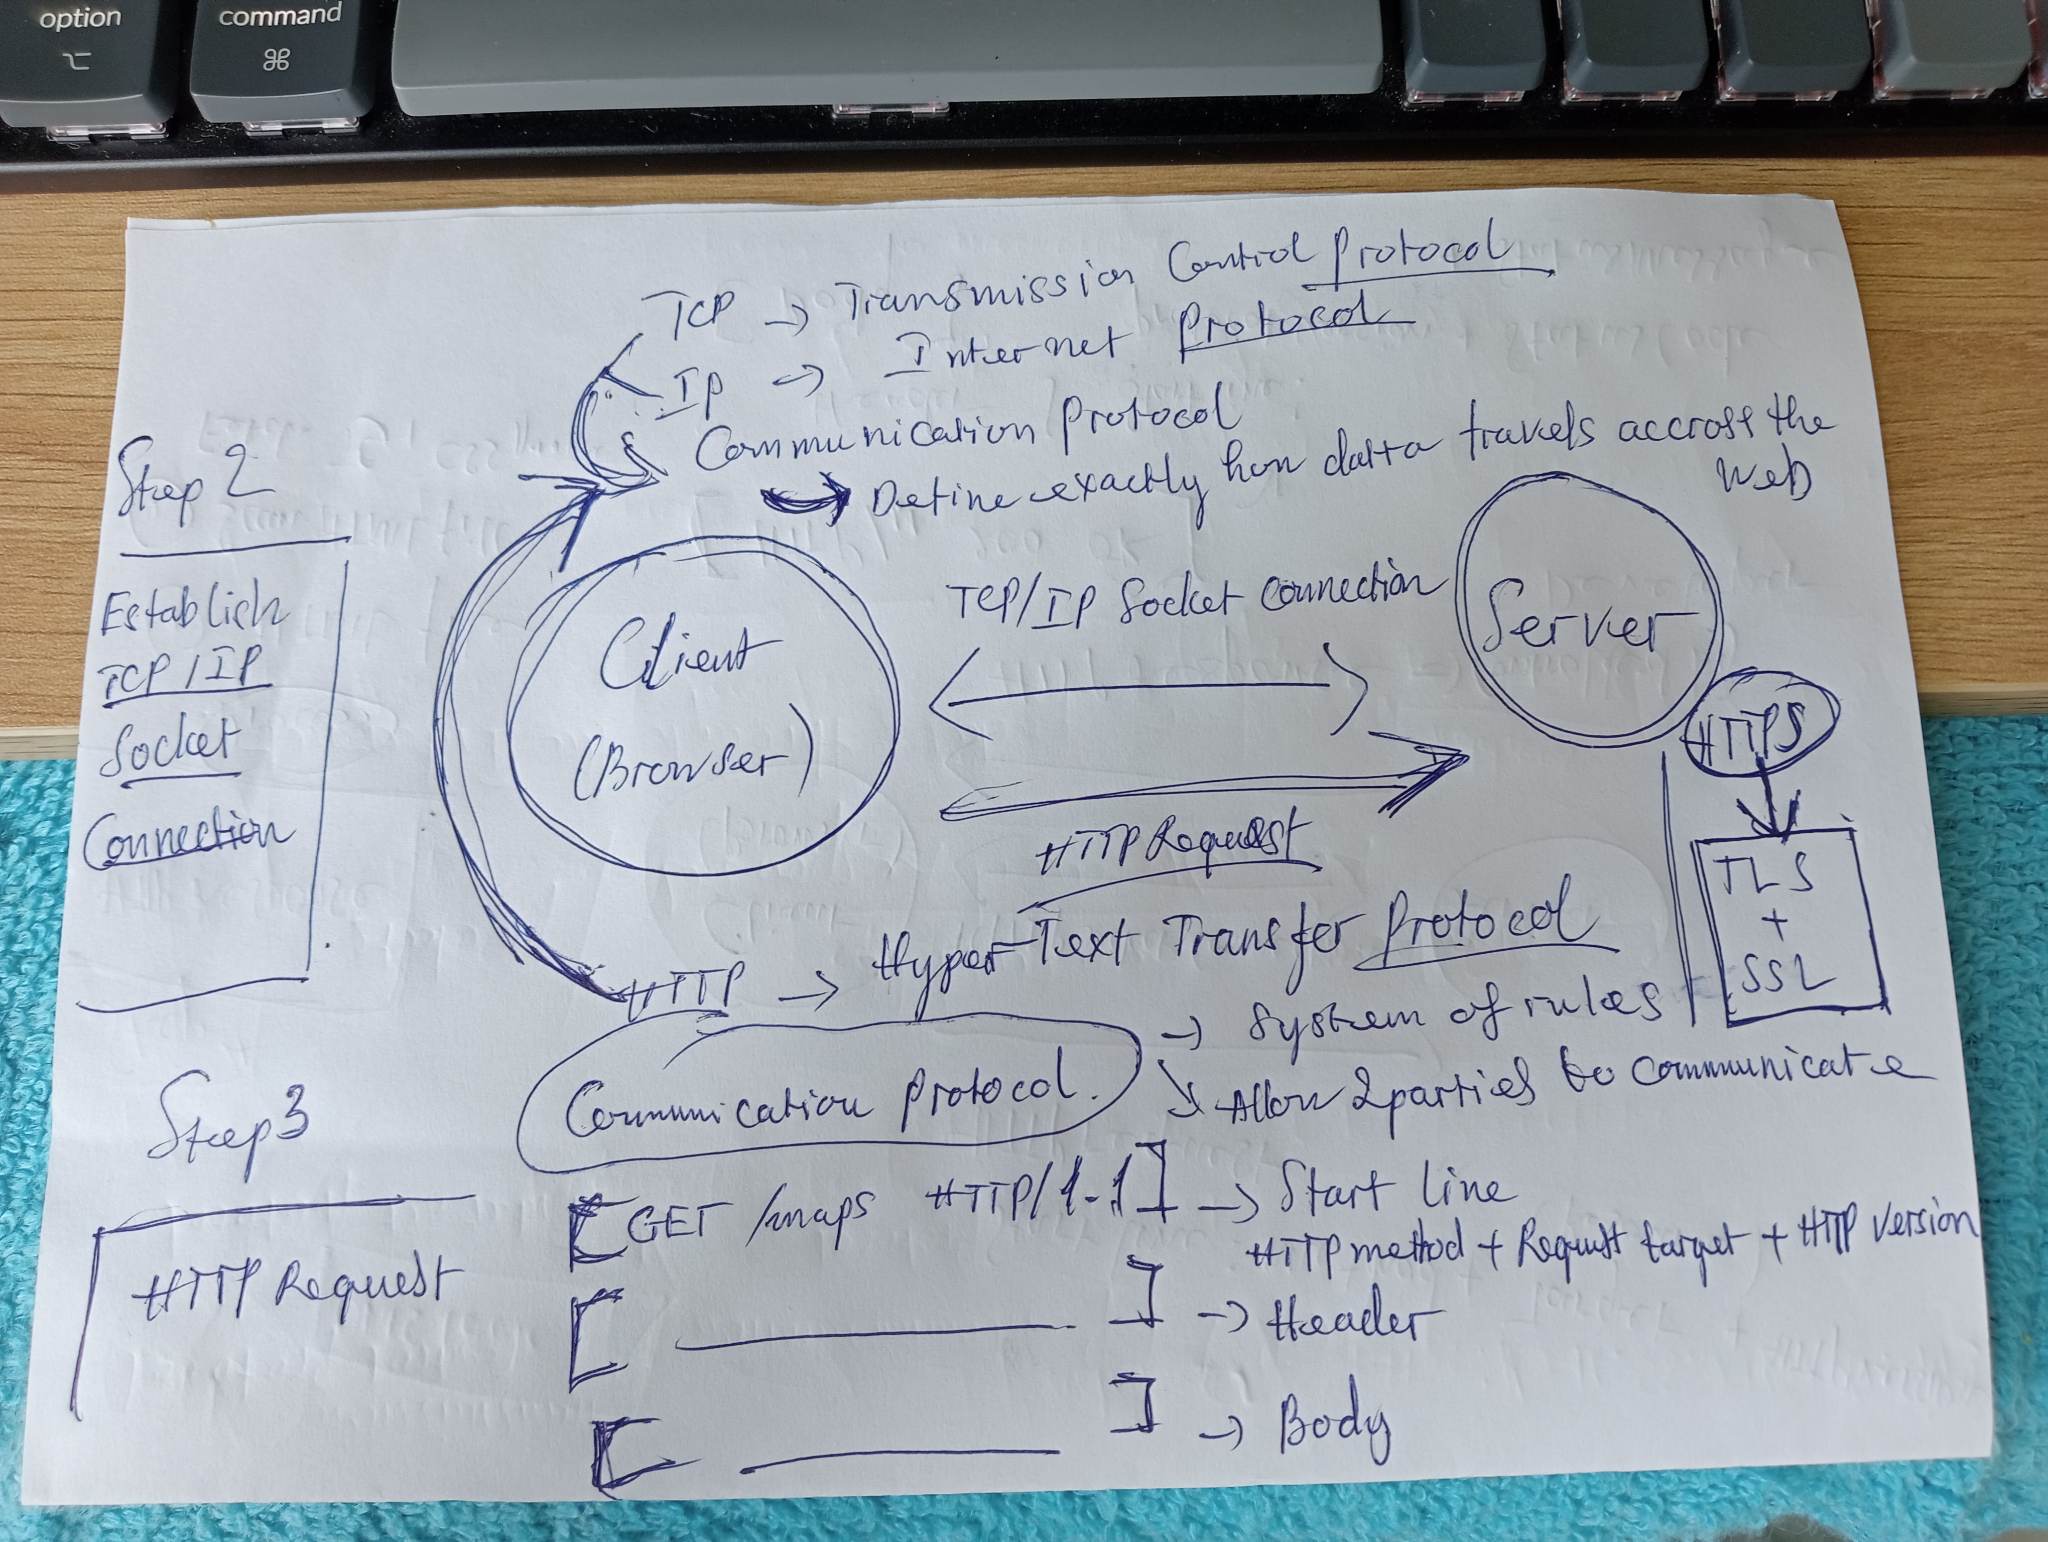 option
⌥
command
⌘
TCP → Transmission Control Protocol
IP → Internet Protocol
Communication Protocol
→ Define exactly how datta travels accross the
Web
Step 2
Establish
TCP / IP
Socket
Connection
Client
(Browser)
TCP/IP Socket Connection
Server
HTTPS
TLS
+
SSL
HTTP Request
HTTP → Hyper Text Transfer Protocol
Communication Protocol.
→ System of rules
↘ Allow 2 parties to communicate
Step 3
HTTP Request
[GET /maps HTTP/1.1] → Start line
HTTP method + Request target + HTTP version
[ ] → Header
[ ] → Body